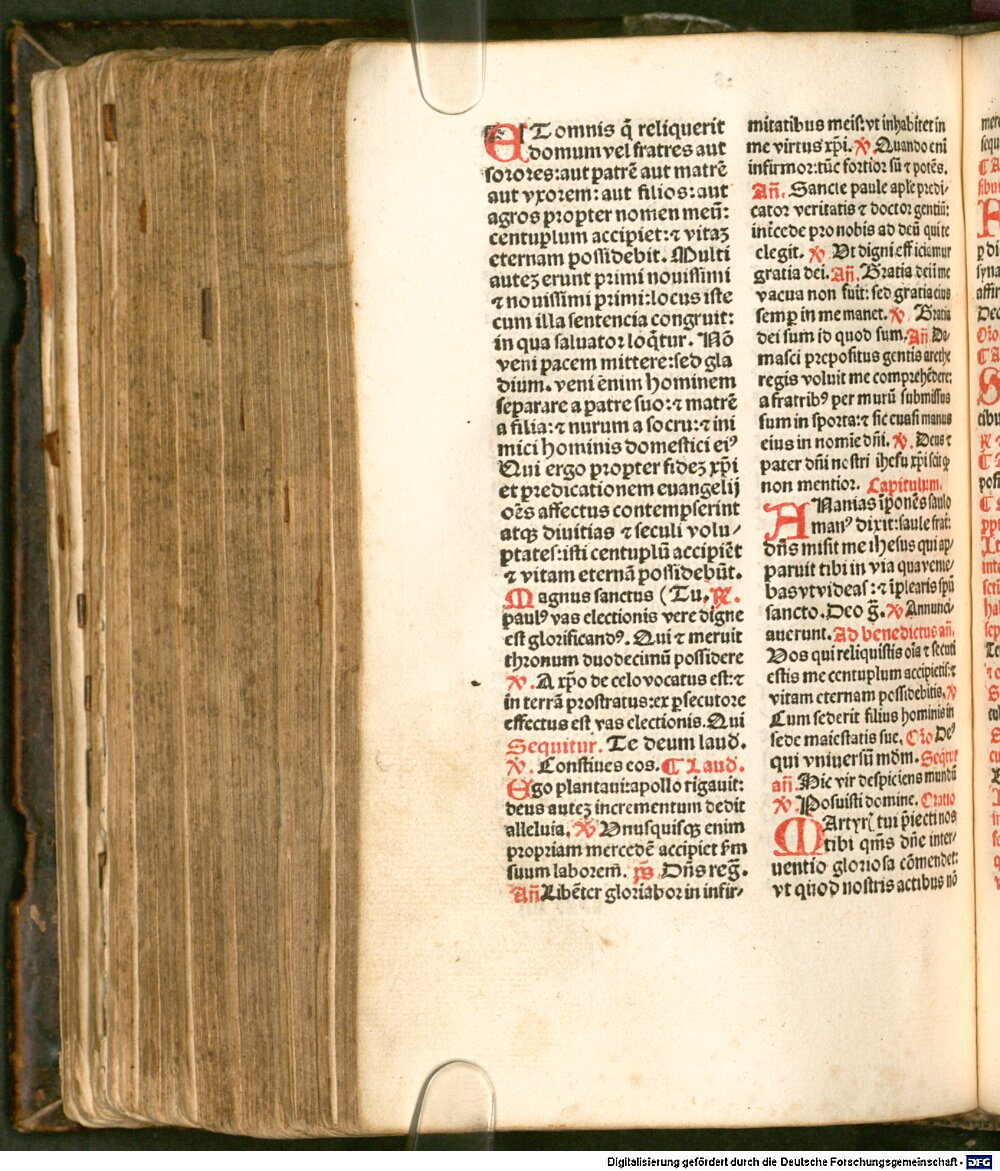 ET omnis q̄ reliquerit
domum vel fratres aut
sorores: aut patrē aut matrē
aut vxorem: aut filios: aut
agros propter nomen meū:
centuplum accipiet: ⁊ vitaꝫ
eternam possidebit. Multi
auteꝫ erunt primi nouissimi
⁊ nouissimi primi: locus iste
cum illa sentencia congruit:
in qua saluator loq̄tur. Nō
veni pacem mittere: sed gla
dium. veni enim hominem
separare a patre suo: ⁊ matrē
a filia: ⁊ nurum a socru: ⁊ ini
mici hominis domestici eiꝰ
Qui ergo propter fideꝫ xp̄i
et predicationem euangelij
oēs affectus contempserint
atqꝫ diuitias ⁊ seculi volu/
ptates: isti centuplū accipiēt
⁊ vitam eternā possidebūt.
Magnus sanctus (Tu. ℟.
paulꝰ vas electionis vere digne
est glorificandꝰ. Qui ⁊ meruit
thronum duodecimū possidere
℣. A xp̄o de celo vocatus est: ⁊
in terrā prostratus: ex ꝑsecutore
effectus est vas electionis. Qui
Sequitur. Te deum laud.
℣. Constiues eos. ¶ Laud.
Ego plantaui: apollo rigauit:
deus auteꝫ incrementum dedit
alleluia. ℣ Vnusquisqꝫ enim
propriam mercedē accipiet ẜm
suum laborem. ps̄ Dn̄s reḡ.
Añ. Libēter gloriabor in infir/
mitatibus meis: vt inhabitet in
me virtus xp̄i. ℣ Quando eni
infirmor: tūc fortior sū ⁊ potēs.
Añ. Sancte paule aplē predi/
cator veritatis ⁊ doctor gentiū:
intˀcede pro nobis ad deū qui te
elegit. ℣ Vt digni efficiamur
gratia dei. Añ. Gratia dei in me
vacua non fuit: sed gratia eius
semꝑ in me manet. ℣. Gratia
dei sum id quod sum. Añ Da
masci prepositus gentis arethe
regis voluit me comprehēdere:
a fratribꝰ per murū submissus
sum in sporta: ⁊ sic euasi manus
eius in nomīe dn̄i. ℣. Deus ⁊
pater dn̄i nostri ihesu xp̄i scit ꝙ
non mentior. Capitulum.
ANanias īponēs saulo
manꝰ dixit: saule frat̄:
dn̄s misit me ihesus qui ap/
paruit tibi in via qua venie/
bas vt videas: ⁊ īplearis spū
sancto. Deo g̅. ℣ Annunci/
auerunt. Ad benedictus añ.
Vos qui reliquistis oīa ⁊ secuti
estis me centuplum accipietis: ⁊
vitam eternam possidebitis. ℣
Cum sederit filius hominis in
sede maiestatis sue. Orō Deꝰ
qui vniuersū mdm̄. Seqt̄ur
añ. Hic vir despiciens mundū
℣. Posuisti domine. Oratio
MArtyr( tui p̄iecti nos
tibi qm̄s dn̄e inter/
uentio gloriosa cōmendet:
vt quod nostris actibus nō
Digitalisierung gefördert durch die Deutsche Forschungsgemeinschaft - DFG